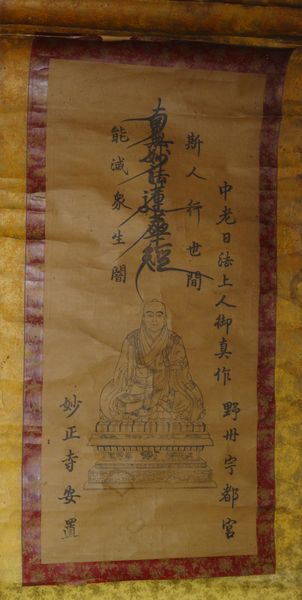 中老日法上人御真作　野州宇都宮
斯人行世間
南無妙法蓮華經
能滅衆生闇
妙正寺安置